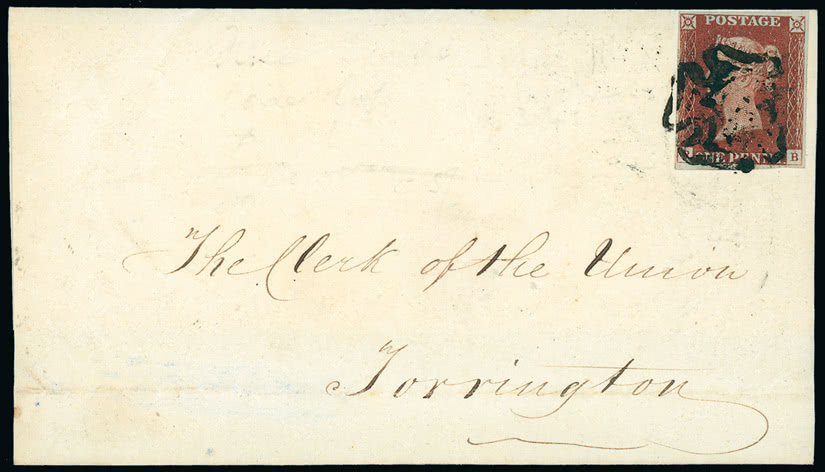 POSTAGE
ONE PENNY
B
The Clerk of the Union
Torrington